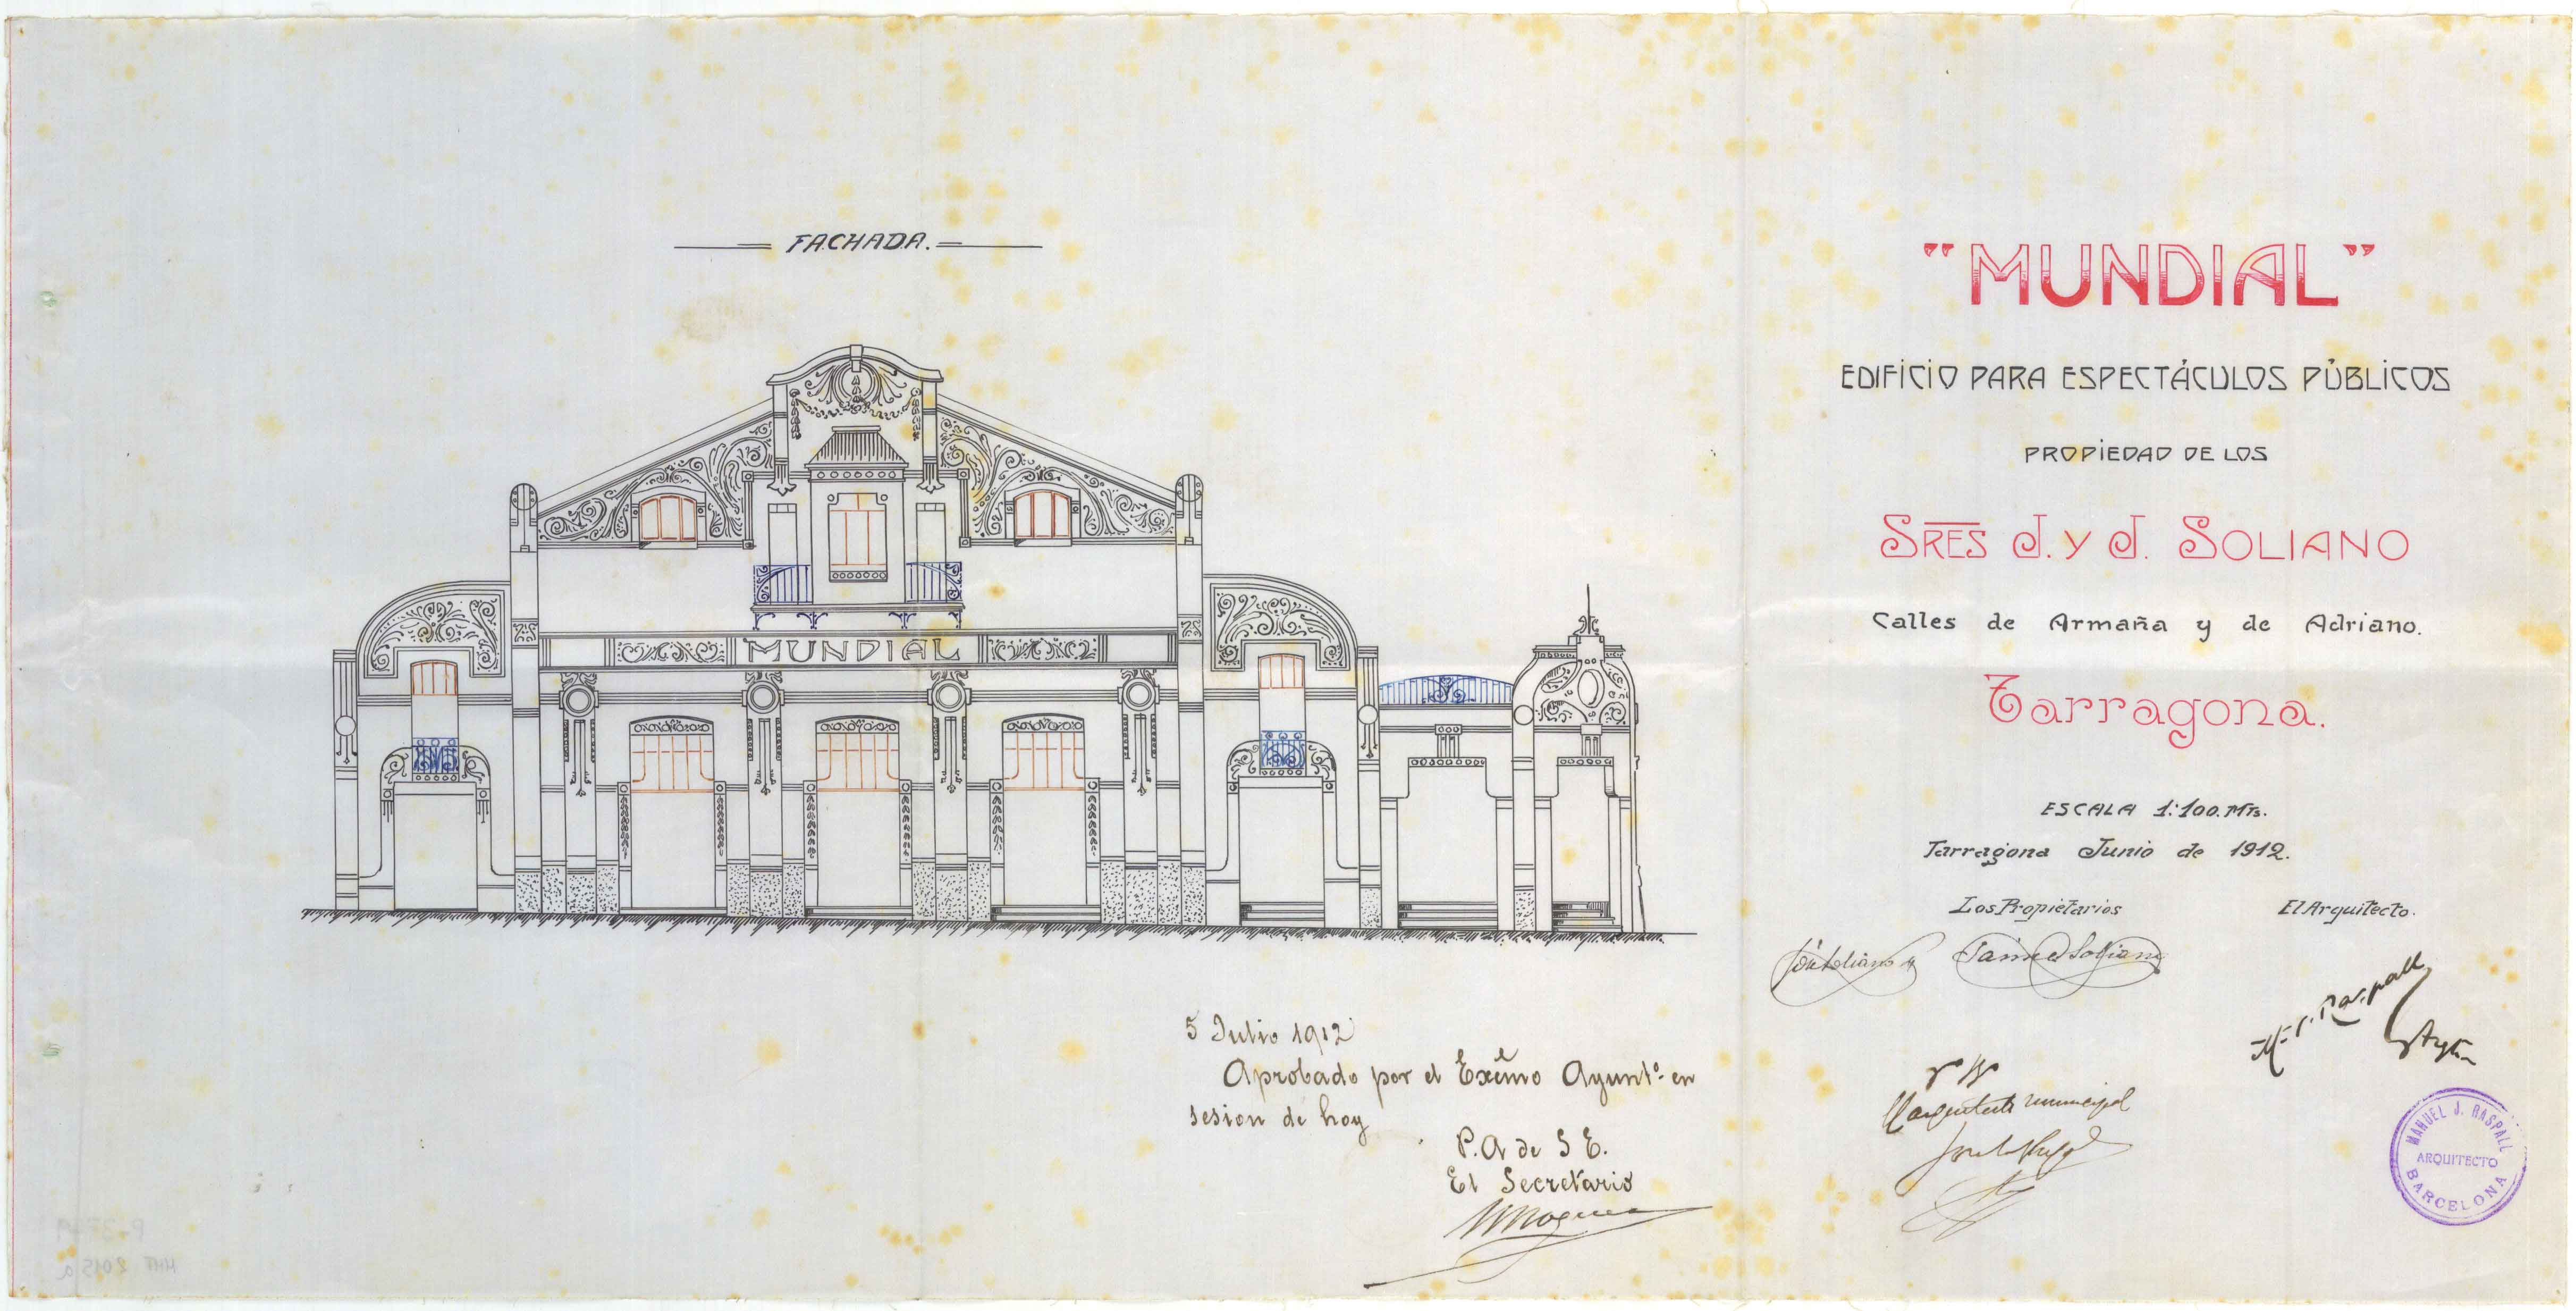 FACHADA.
MUNDIAL
"MUNDIAL"
EDIFICIO PARA ESPECTÁCULOS PÚBLICOS
PROPIEDAD DE LOS
SRES J. Y J. SOLIANO
Calles de Armaña y de Adriano.
Tarragona.
ESCALA 1:100. MTS.
Tarragona Junio de 1912.
Los Propietarios
El Arquitecto.
Jaime Soliano
M. J. Raspall
5 Julio 1912
Aprobado por el Exêmo Ayuntº en
sesion de hoy
P.A de S E.
El Secretario
Vº Bº
El arquitecto municipal
MANUEL J. RASPALL
ARQUITECTO
BARCELONA